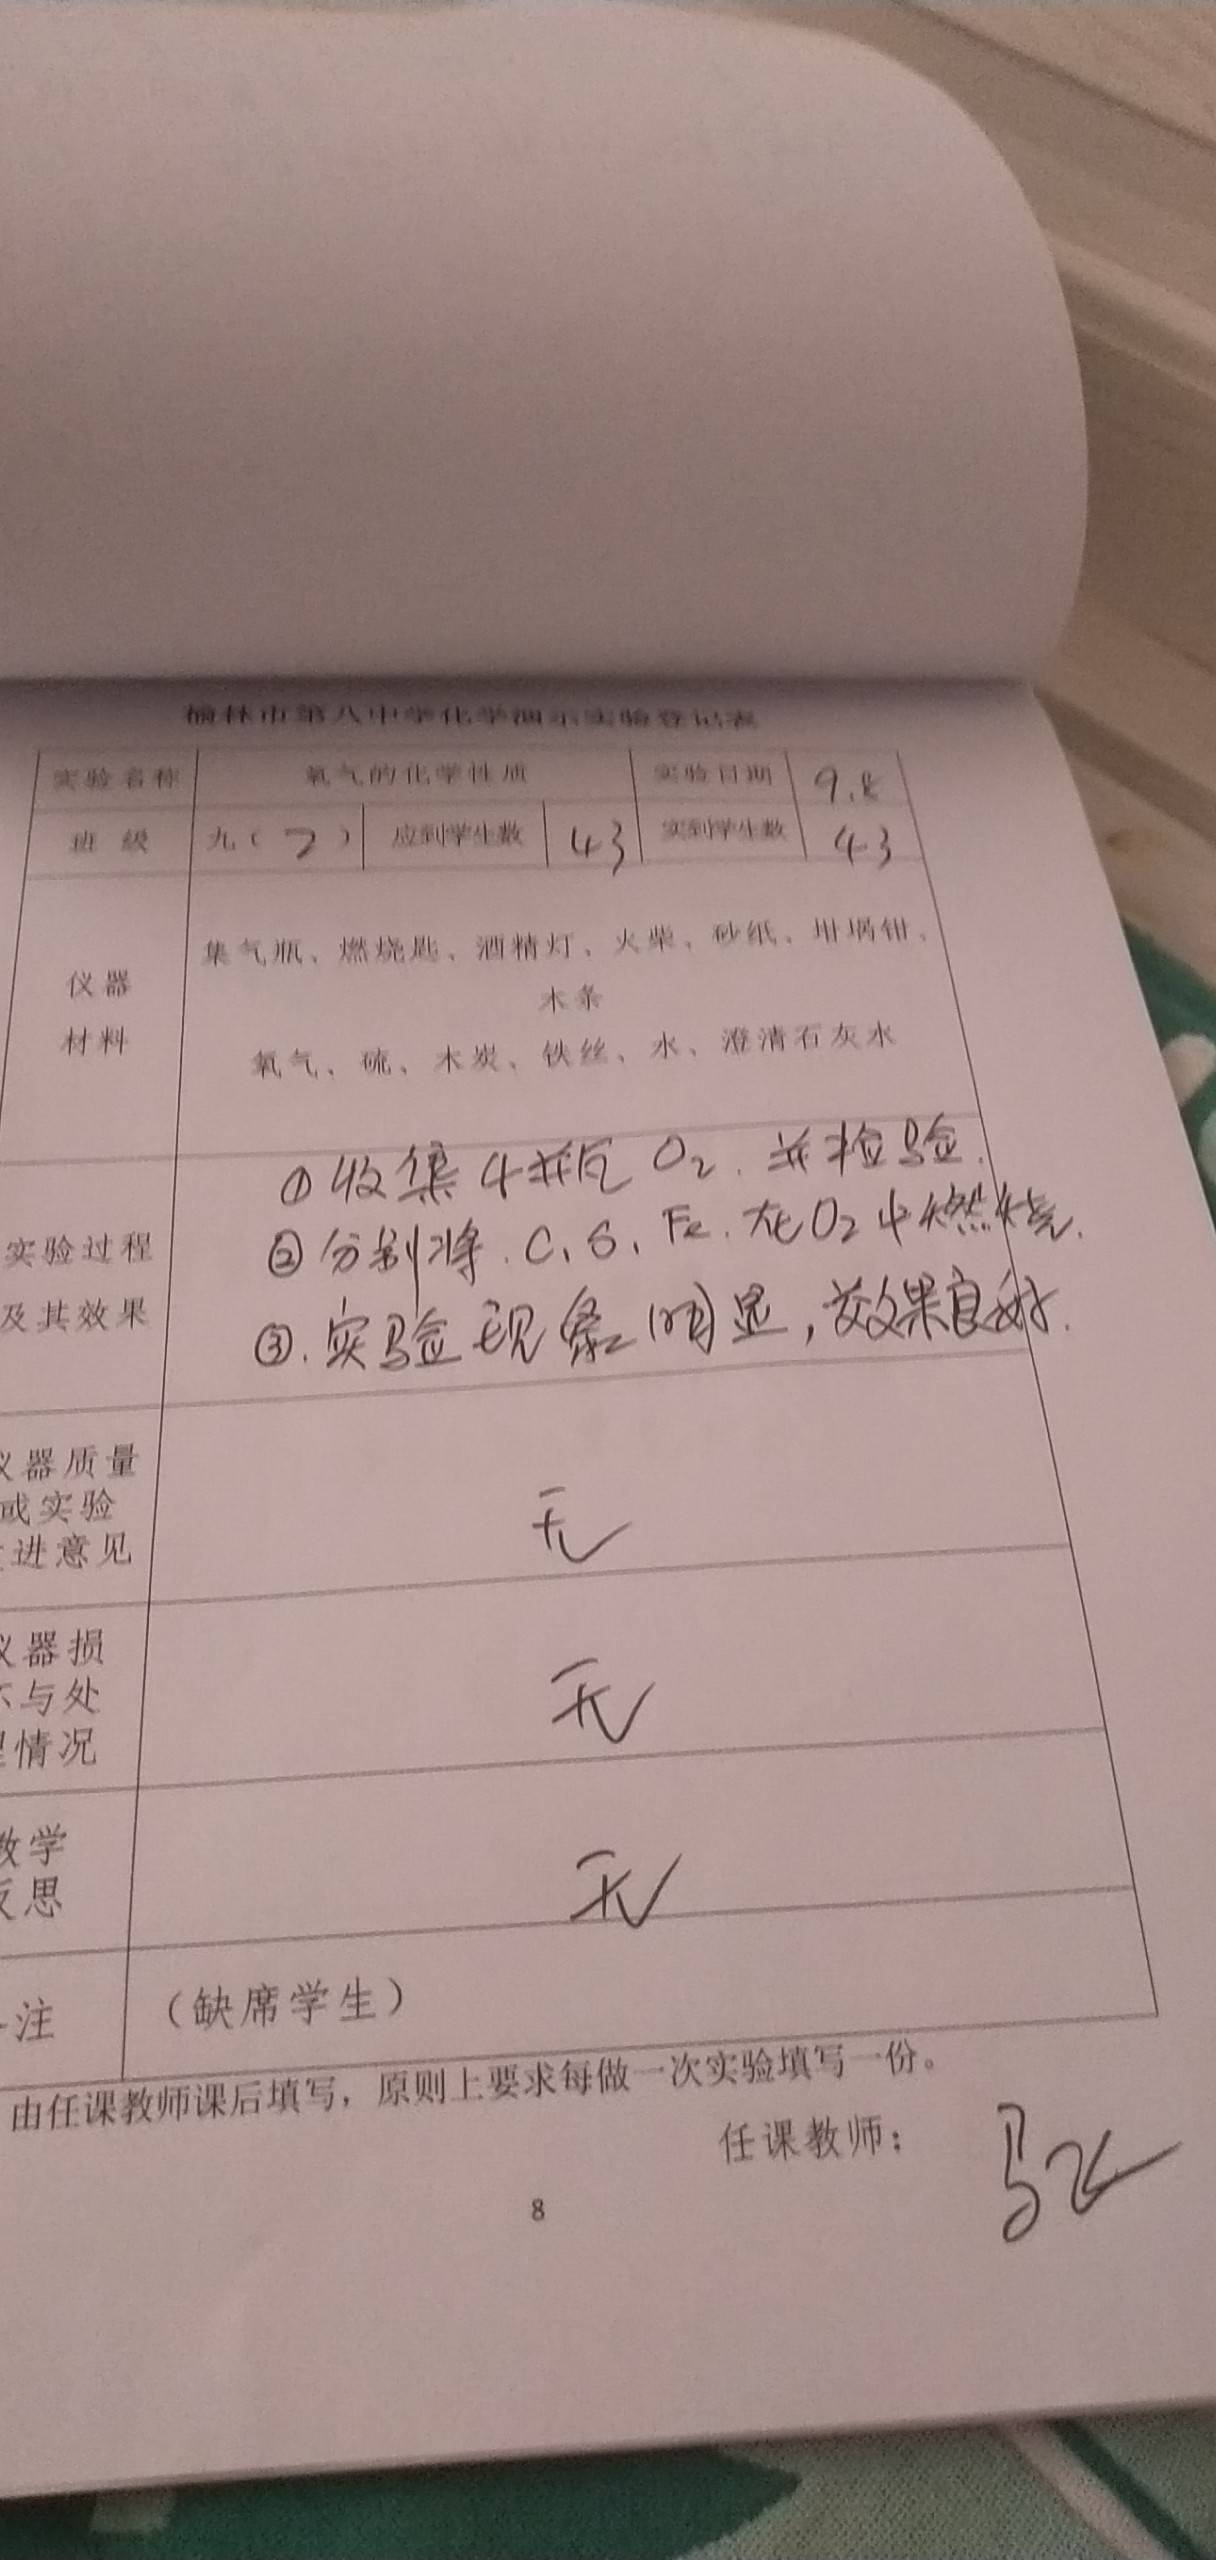 榆林市第八中学化学演示实验登记表
实验名称 氧气的化学性质 实验日期 9.8
班 级 九（2） 应到学生数 43 实到学生数 43
仪器
材料
集气瓶、燃烧匙、酒精灯、火柴、砂纸、坩埚钳、
木条
氧气、硫、木炭、铁丝、水、澄清石灰水
实验过程
及其效果
①收集4瓶O₂.并检验.
②分别将.C、S、Fe.在O₂中燃烧.
③.实验现象明显，效果良好.
仪器质量
或实验
进意见
无
仪器损
与处
情况
无
教学
反思
无
注 （缺席学生）
由任课教师课后填写，原则上要求每做一次实验填写一份。
任课教师：
8